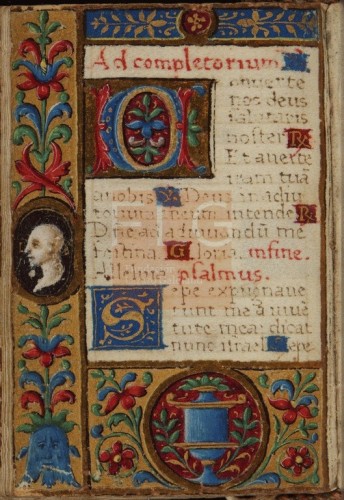 Ad completorium
Conuerte
nos deus
salutaris
noster R
Et auerte
iram tuã
a nobis V Deus in adiu
torium meum intende R
Dñe ad adiuuandũ me
festina Gloria infine.
Alleluia psalmus.
Sepe expugnaue
runt me a iuue
tute mea: dicat
nunc israel Sepe